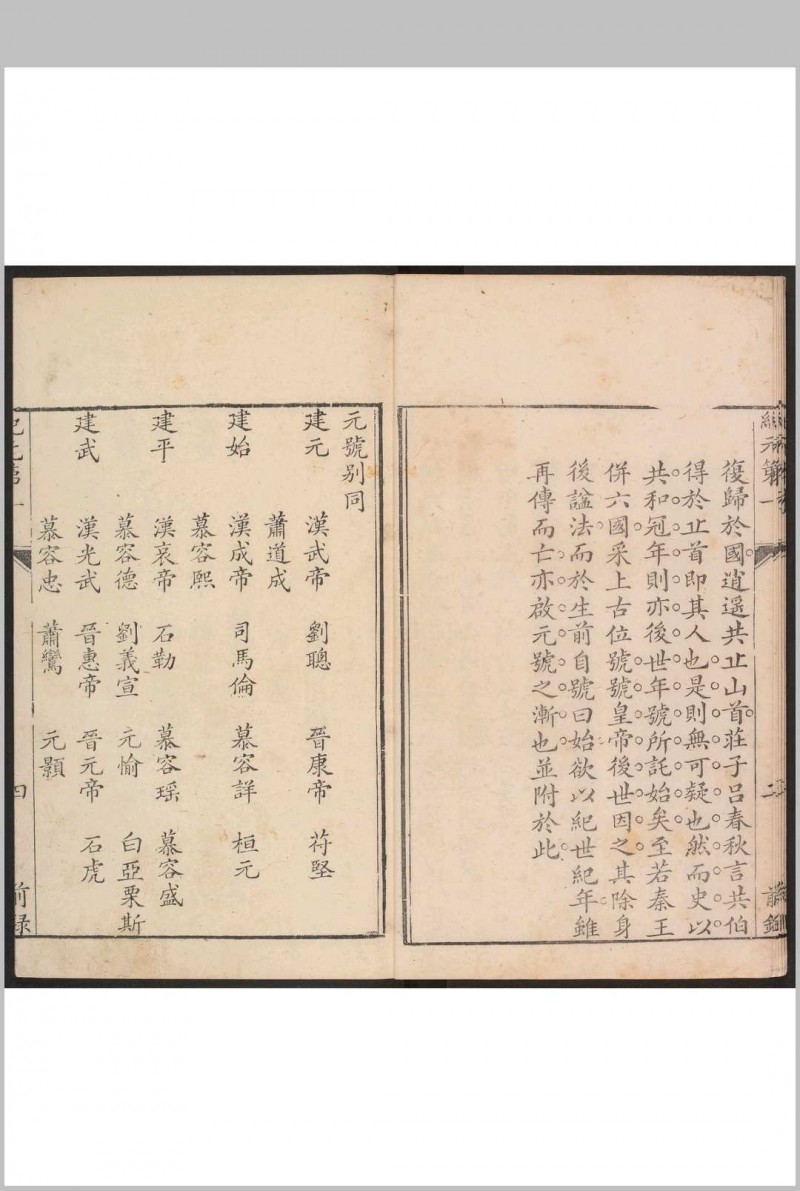 復歸於國逍遥共丘山首莊子呂春秋言共伯
得於丘首即其人也是則無可疑也然而史以
共和冠年則亦後世年號所託始矣至若秦王
併六國采上古位號號皇帝後世因之其除身
後諡法而於生前自號曰始欲以紀世紀年雖
再傳而亡亦啟元號之漸也並附於此
元號别同
建元 漢武帝 劉聰 晉康帝 苻堅
蕭道成
建始 漢成帝 司馬倫 慕容詳 桓元
慕容熙
建平 漢哀帝 石勒 慕容瑶 慕容盛
慕容德 劉義宣 元愉 白亞栗斯
建武 漢光武 晉惠帝 晉元帝 石虎
慕容忠 蕭鸞 元顥
紀元第一 四 前録